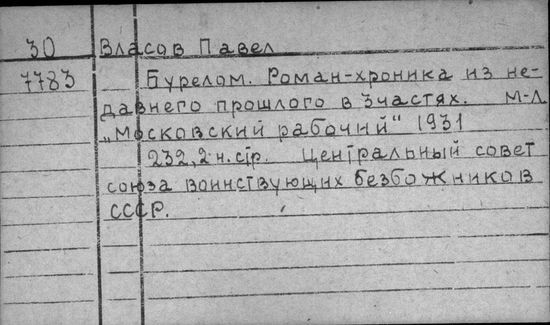 30 Власов Павел
7783 Бурелом. Роман-хроника из не-
давнего прошлого в 3 частях. М-Л
„Московский рабочий“ 1931
232, 2 н. стр. Центральный совет
союза воинствующих безбожников
СССР.